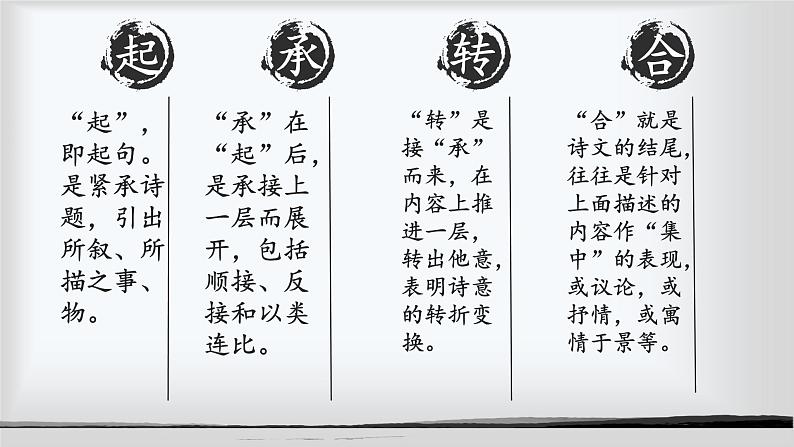 起
“起”，
即起句。
是紧承诗
题，引出
所叙、所
描之事、
物。
承
“承”在
“起”后，
是承接上
一层而展
开，包括
顺接、反
接和以类
连比。
转
“转”是
接“承”
而来，在
内容上推
进一层，
转出他意，
表明诗意
的转折变
换。
合
“合”就是
诗文的结尾，
往往是针对
上面描述的
内容作“集
中”的表现，
或议论，或
抒情，或寓
情于景等。